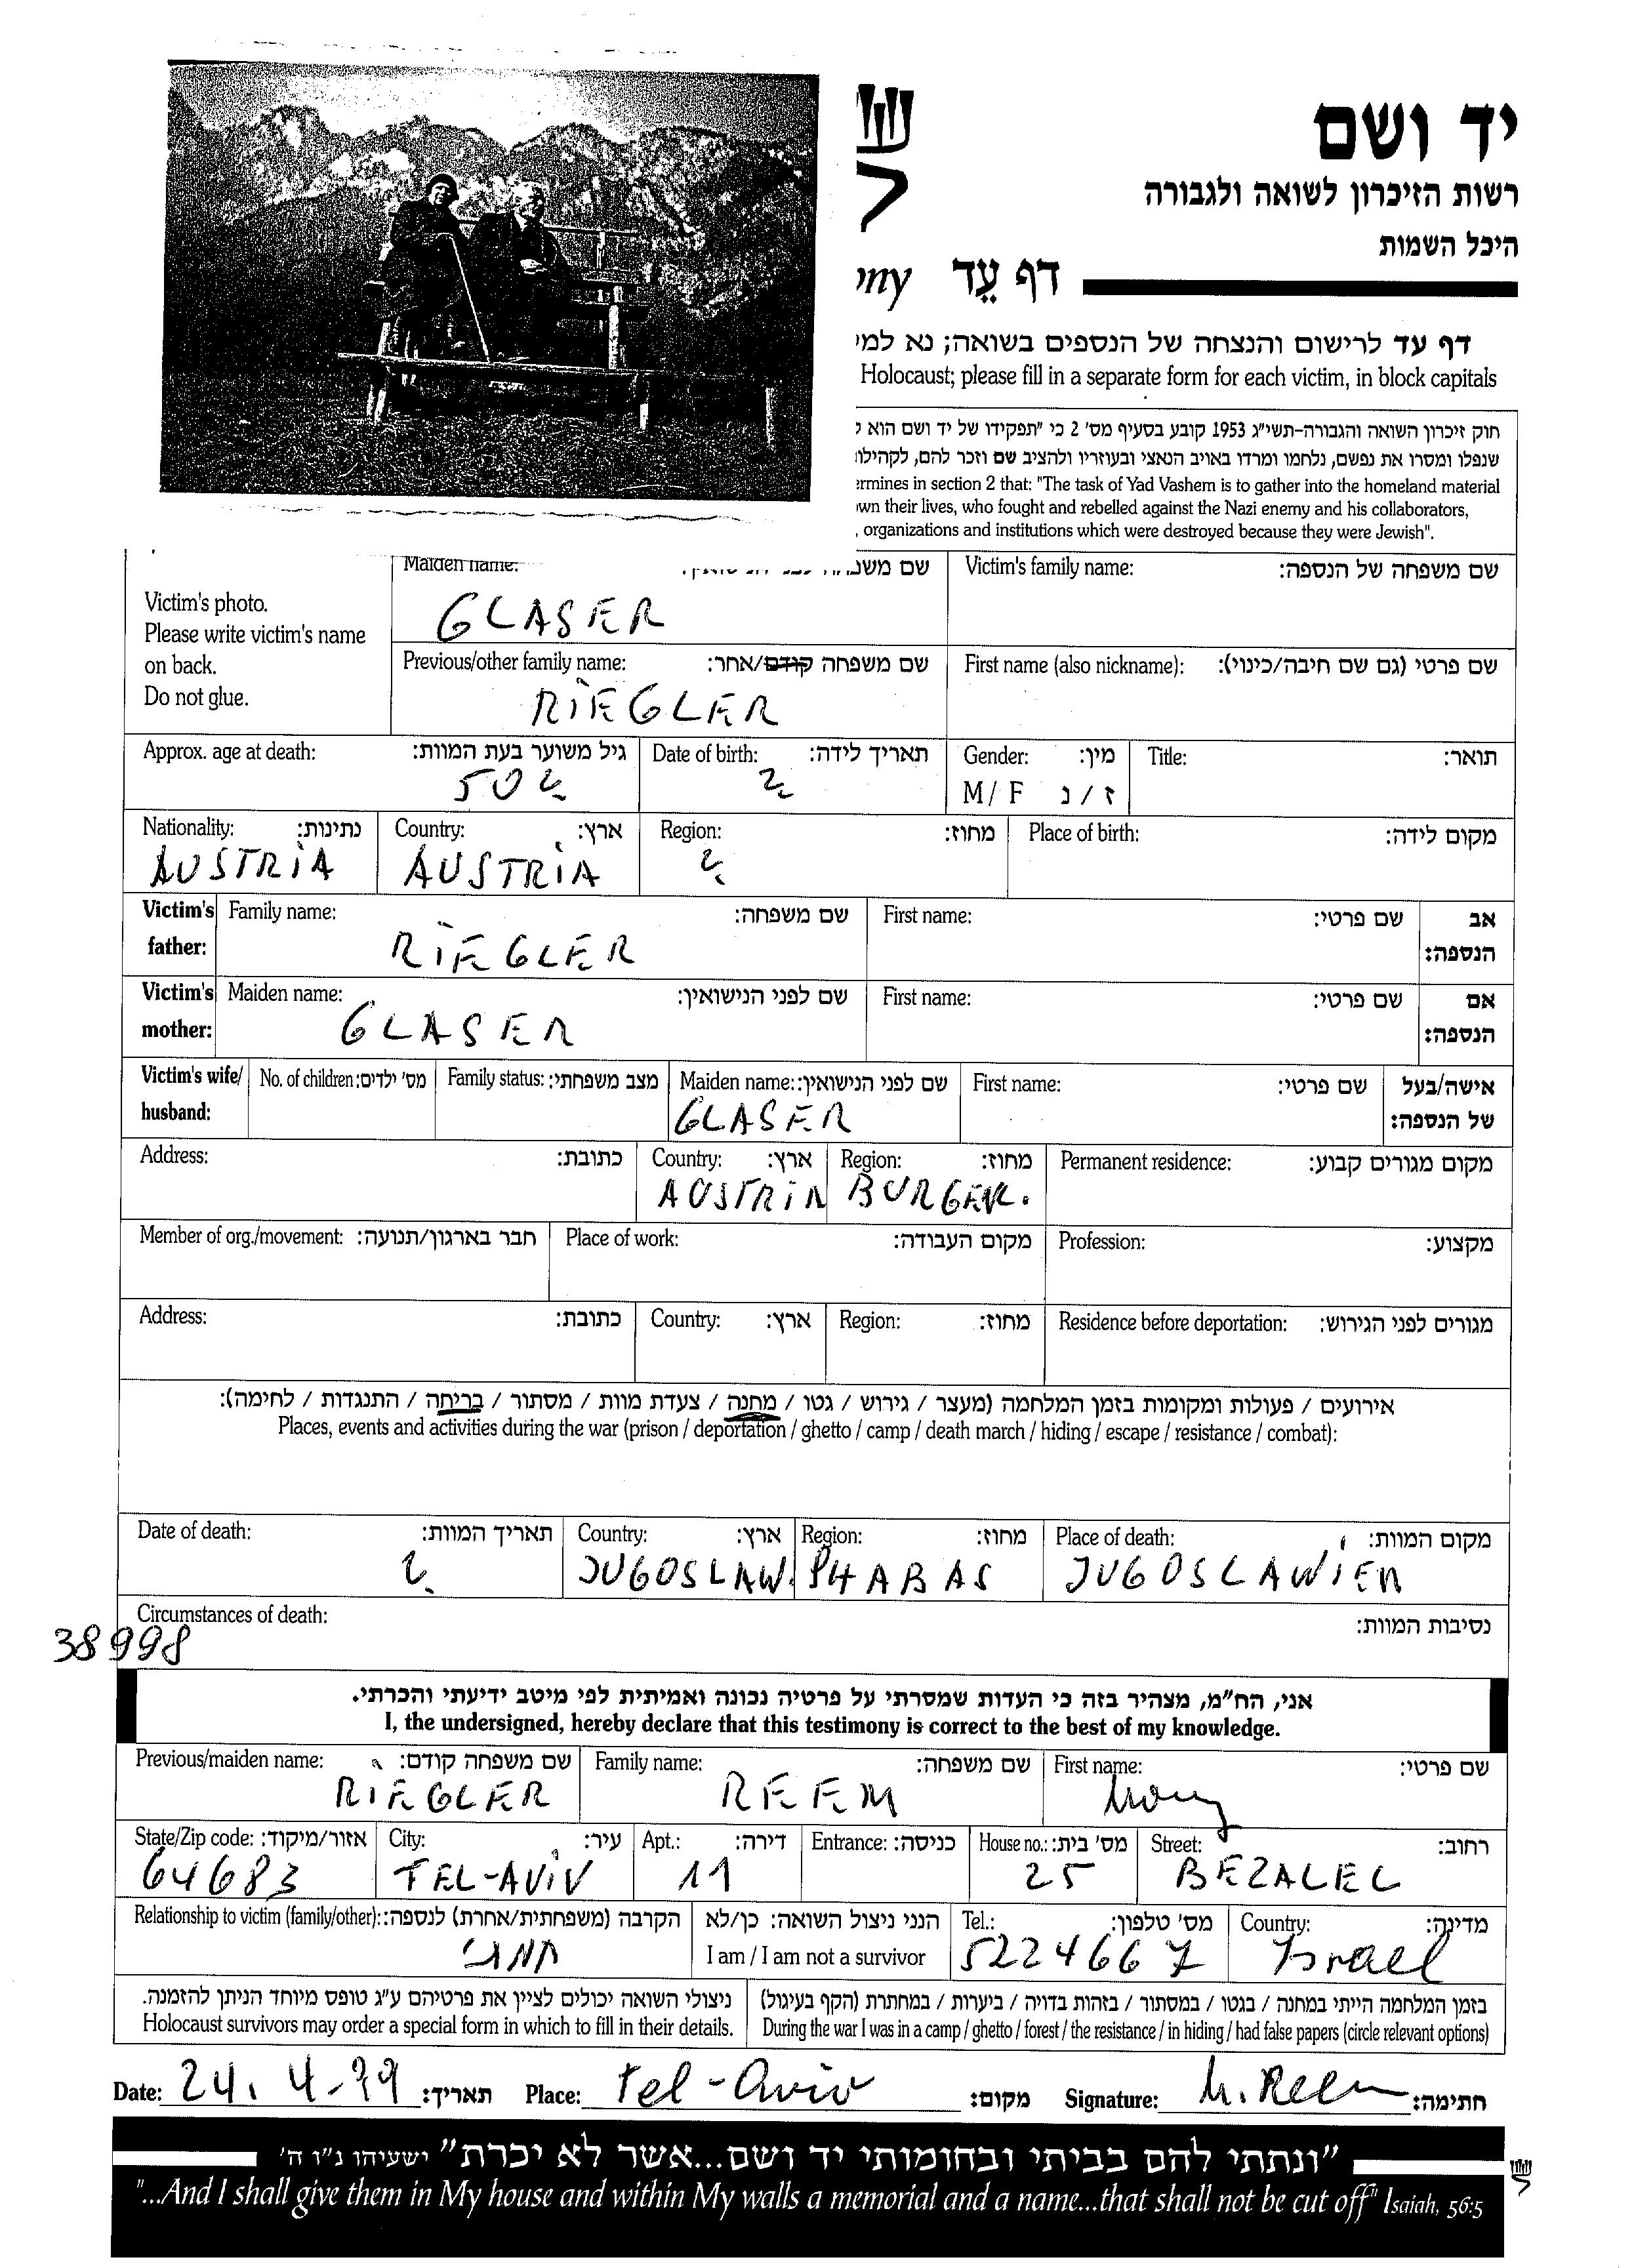 יד ושם
רשות הזיכרון לשואה ולגבורה
היכל השמות
ny דף עֵד
דף עד לרישום והנצחה של הנספים בשואה; נא למי
Holocaust; please fill in a separate form for each victim, in block capitals
חוק זיכרון השואה והגבורה-תשי"ג 1953 קובע בסעיף מס' 2 כי "תפקידו של יד ושם הוא ל
שנפלו ומסרו את נפשם, נלחמו ומרדו באויב הנאצי ובעוזריו ולהציב שם וזכר להם, לקהילו
ermines in section 2 that: "The task of Yad Vashem is to gather into the homeland material
wn their lives, who fought and rebelled against the Nazi enemy and his collaborators,
, organizations and institutions which were destroyed because they were Jewish".
Victim's photo.
Please write victim's name
on back.
Do not glue.
Maiden name: שם מש
GLASER
Victim's family name: שם משפחה של הנספה:
Previous/other family name: שם משפחה קודם/אחר:
RIEGLER
First name (also nickname): שם פרטי (גם שם חיבה/כינוי):
Approx. age at death: גיל משוער בעת המוות:
50 ?
Date of birth: תאריך לידה:
?
Gender: מין:
M/F ז/נ
Title: תואר:
Nationality: נתינות:
AUSTRIA
Country: ארץ:
AUSTRIA
Region: מחוז:
?
Place of birth: מקום לידה:
Victim's father: Family name: שם משפחה:
RIEGLER
First name: שם פרטי: אב הנספה:
Victim's mother: Maiden name: שם לפני הנישואין:
GLASER
First name: שם פרטי: אם הנספה:
Victim's wife/ husband: No. of children: מס' ילדים: Family status: מצב משפחתי: Maiden name: שם לפני הנישואין:
GLASER
First name: שם פרטי: אישה/בעל של הנספה:
Address: כתובת:
Country: ארץ:
AUSTRIA
Region: מחוז:
BURGEN.
Permanent residence: מקום מגורים קבוע:
Member of org./movement: חבר בארגון/תנועה: Place of work: מקום העבודה: Profession: מקצוע:
Address: כתובת: Country: ארץ: Region: מחוז: Residence before deportation: מגורים לפני הגירוש:
אירועים / פעולות ומקומות בזמן המלחמה (מעצר / גירוש / גטו / מחנה / צעדת מוות / מסתור / בריחה / התנגדות / לחימה):
Places, events and activities during the war (prison / deportation / ghetto / camp / death march / hiding / escape / resistance / combat):
Date of death: תאריך המוות:
?
Country: ארץ:
JUGOSLAW.
Region: מחוז:
SHABAS
Place of death: מקום המוות:
JUGOSLAWIEN
Circumstances of death: נסיבות המוות:
38998
אני, הח"מ, מצהיר בזה כי העדות שמסרתי על פרטיה נכונה ואמיתית לפי מיטב ידיעתי והכרתי.
I, the undersigned, hereby declare that this testimony is correct to the best of my knowledge.
Previous/maiden name: שם משפחה קודם:
RIEGLER
Family name: שם משפחה:
REEM
First name: שם פרטי:
State/Zip code: אזור/מיקוד:
64683
City: עיר:
TEL-AVIV
Apt.: דירה:
11
Entrance: כניסה:
House no.: מס' בית:
25
Street: רחוב:
BEZALEL
Relationship to victim (family/other): הקרבה (משפחתית/אחרת) לנספה:
הנני ניצול השואה: כן/לא
I am / I am not a survivor
Tel.: מס' טלפון:
5224667
Country: מדינה:
Israel
ניצולי השואה יכולים לציין את פרטיהם ע"ג טופס מיוחד הניתן להזמנה.
Holocaust survivors may order a special form in which to fill in their details.
בזמן המלחמה הייתי במחנה / בגטו / במסתור / בזהות בדויה / ביערות / במחתרת (הקף בעיגול)
During the war I was in a camp / ghetto / forest / the resistance / in hiding / had false papers (circle relevant options)
Date: 24. 4-99 תאריך: Place: Tel-Aviv מקום: Signature: M. Reem חתימה:
"ונתתי להם בביתי ובחומותי יד ושם...אשר לא יכרת" ישעיהו נ"ו ה'
"...And I shall give them in My house and within My walls a memorial and a name...that shall not be cut off" Isaiah, 56:5